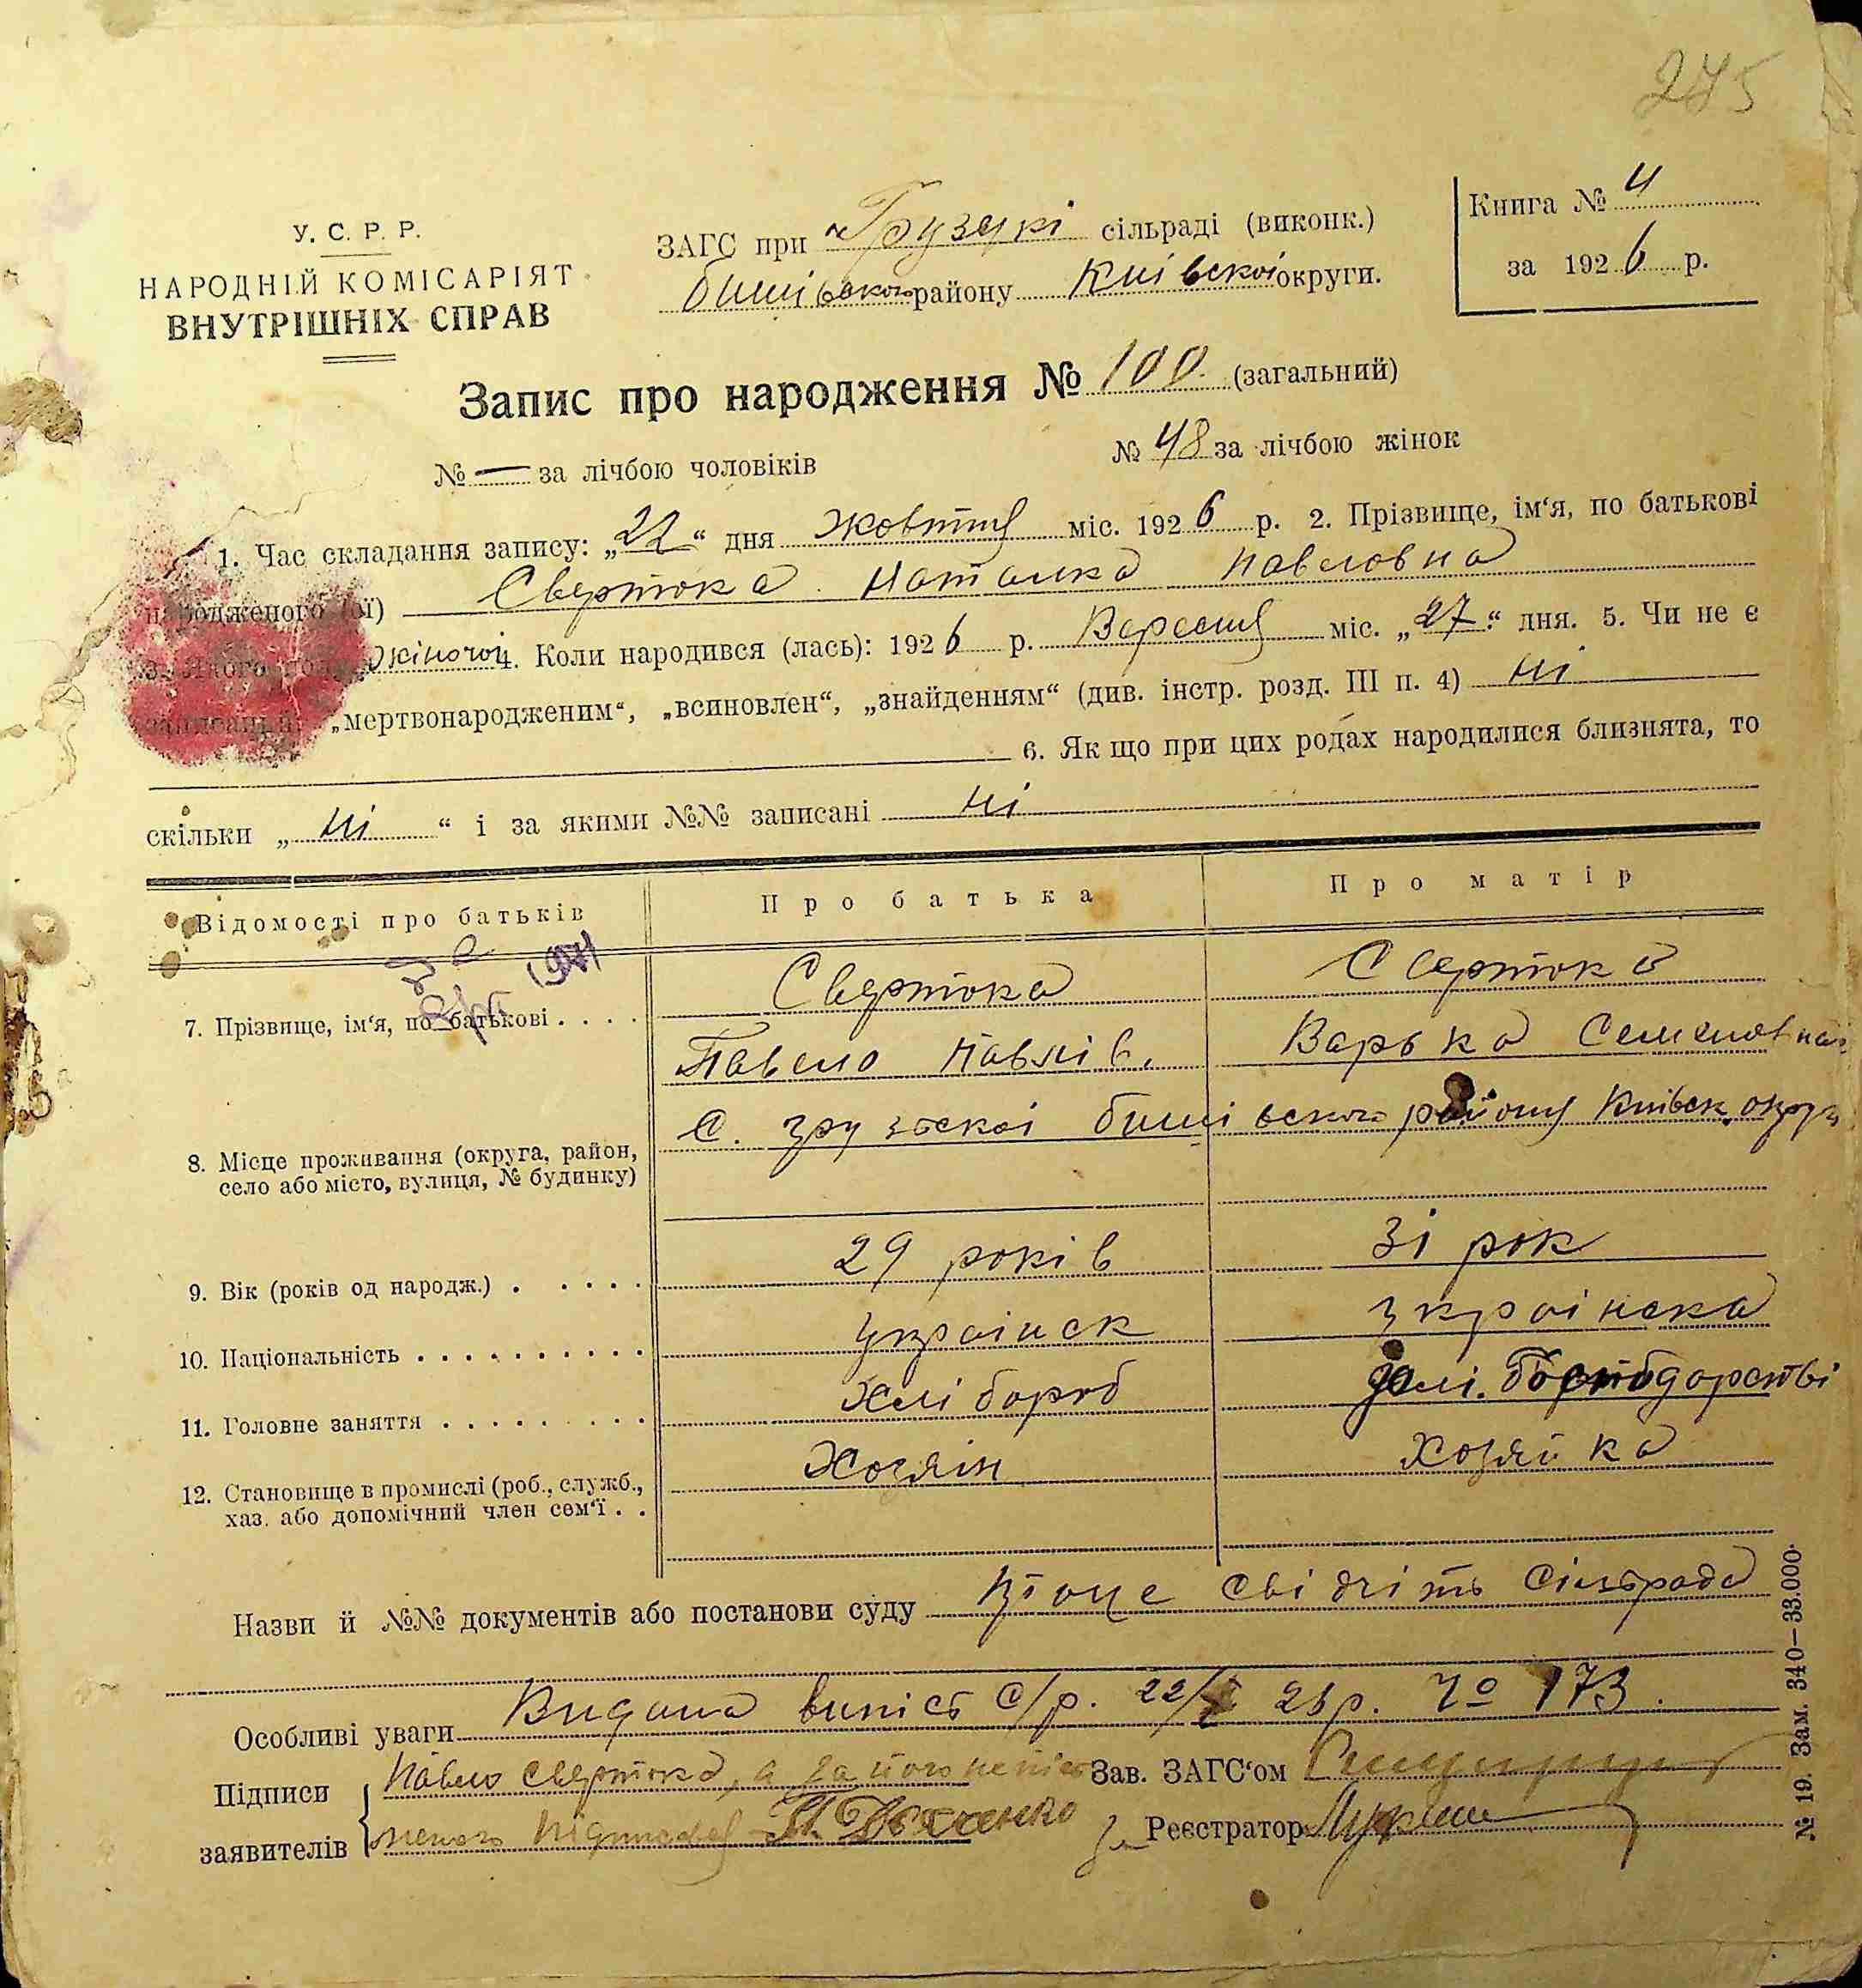 275
У. С. Р. Р.
НАРОДНІЙ КОМІСАРІЯТ
ВНУТРІШНІХ СПРАВ
ЗАГС при Грузскі сільраді (виконк.)
бишівського району Київскої округи.
Книга № 4
за 1926 р.
Запис про народження № 100 (загальний)
№ — за лічбою чоловіків № 48 за лічбою жінок
1. Час складання запису: „22“ дня жовтня міс. 1926 р. 2. Прізвище, ім‘я, по батькові
народженого (ої) Свертока Наталка Павловна
3. Якого жіночої 4. Коли народився (лась): 1926 р. Вересня міс. „27“ дня. 5. Чи не є
записаний „мертвонародженим“, „всиновлен“, „знайденням“ (див. інстр. розд. III п. 4) ні
6. Як що при цих родах народилися близнята, то
скільки „ ні “ і за якими №№ записані ні
Відомості про батьків Про батька Про матір
7. Прізвище, ім‘я, по батькові . . . . Свертока Свертока
Павло Павлів. Варька Семеновна
8. Місце проживання (округа, район, село або місто, вулиця, № будинку) С. грузскої бишівского району Київск округ
9. Вік (років од народж.) . . . . . 29 років 31 рок
10. Національність . . . . . . . . . . українск українска
11. Головне заняття . . . . . . . . . Хлібороб господарстві
12. Становище в промислі (роб., служб., Хозяін Хозяйка
хаз. або допомічний член сем‘ї . .
Назви й №№ документів або постанови суду свідчіть Сільрада
Особливі уваги Видана випісь с/р. 22/X 26 р. № 173.
Підписи Павло Свертока, а за його непісь Зав. ЗАГС‘ом
заявителів меного підписався Реєстратор
№ 19. Зам. 340—33.000.